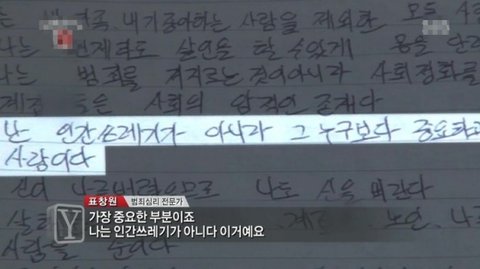 내가 좋아하는 사람을 제외한 모든 사
나는 언제라도 살인을 할 수 있게
나는 범죄를 저지르는 것이 아니라 사회정화를
사회의 암적인 존재다
난 인간쓰레기가 아니라 그 누구보다 중요하고
사람이다
나도 신을 버린다
노인
사람들
표창원 범죄심리 전문가
Y
가장 중요한 부분이죠
나는 인간쓰레기가 아니다 이거예요